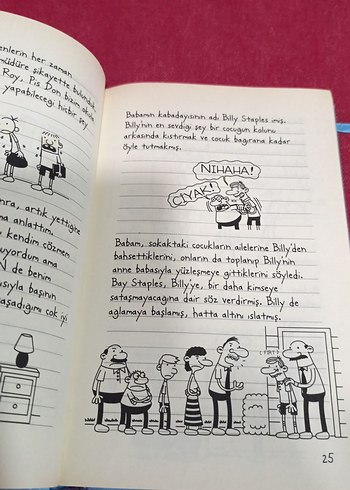 enlerin her zaman
müdüre şikayette bulunduk
Roy, Pis Don bizim okulda
yapabileceği hiçbir şey
nra, artık yettiğine
ma anlattım.
kendim çözmem
uyordum ama
N de benim
sıyla başının
aşadığımı çok iyi
Babamın kabadayısının adı Billy Staples imiş.
Billy'nin en sevdiği şey bir çocuğun kolunu
arkasında kıstırmak ve çocuk bağırana kadar
öyle tutmakmış.
NİHAHA!
CİYAK!
Babam, sokaktaki çocukların ailelerine Billy'den
bahsettiklerini, onların da toplanıp Billy'nin
anne babasıyla yüzleşmeye gittiklerini söyledi.
Bay Staples, Billy'ye, bir daha kimseye
sataşmayacağına dair söz verdirmiş. Billy de
ağlamaya başlamış, hatta altını ıslatmış.
25